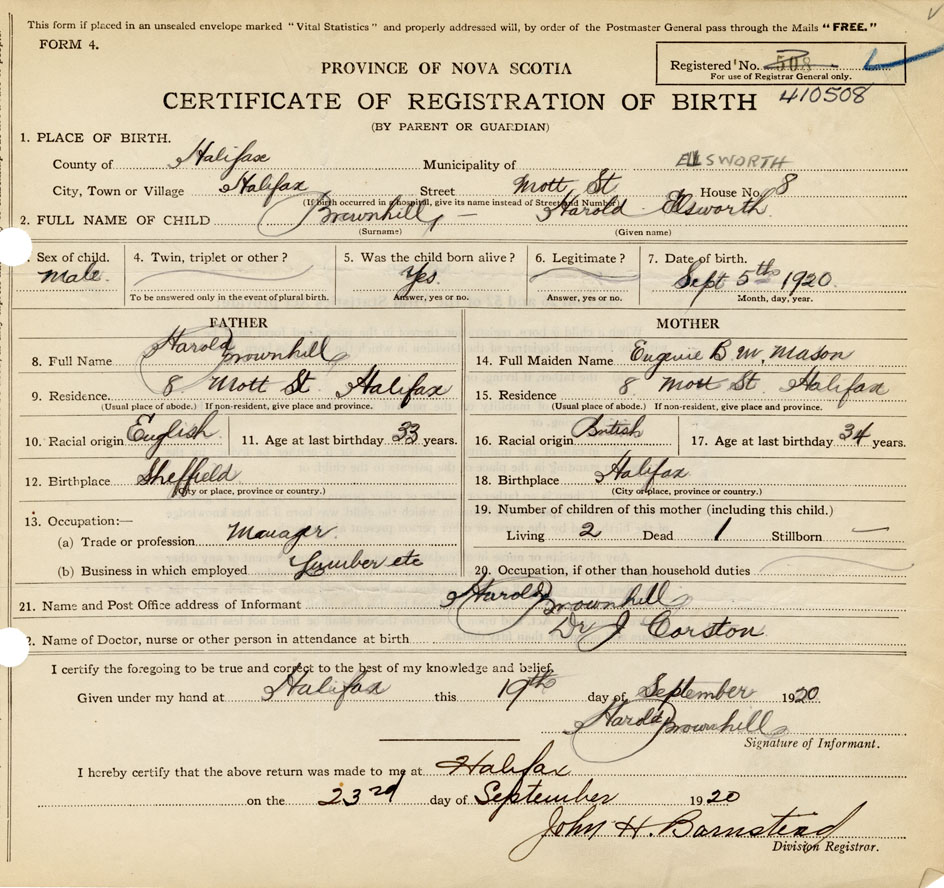 This form if placed in an unsealed envelope marked "Vital Statistics" and properly addressed will, by order of the Postmaster General pass through the Mails "FREE."
FORM 4.
Registered No. 508
For use of Registrar General only.
PROVINCE OF NOVA SCOTIA
CERTIFICATE OF REGISTRATION OF BIRTH 410508
(BY PARENT OR GUARDIAN)
1. PLACE OF BIRTH.
County of Halifax Municipality of ELLSWORTH
City, Town or Village Halifax Street Mott St House No. 8
(If birth occurred in a hospital, give its name instead of Street and Number)
2. FULL NAME OF CHILD Brownhill, — Harold Ellsworth
(Surname) (Given name)
Sex of child. 4. Twin, triplet or other? 5. Was the child born alive? 6. Legitimate? 7. Date of birth.
Male. Yes. Sept 5th 1920
To be answered only in the event of plural birth. Answer, yes or no. Answer, yes or no. Month, day, year.
FATHER MOTHER
8. Full Name Harold Brownhill 14. Full Maiden Name Eugenie B. M. Mason
9. Residence. 8 Mott St. Halifax 15. Residence 8 Mott St. Halifax
(Usual place of abode.) If non-resident, give place and province. (Usual place of abode.) If non-resident, give place and province.
10. Racial origin English 11. Age at last birthday 33 years. 16. Racial origin British 17. Age at last birthday 34 years.
12. Birthplace Sheffield 18. Birthplace Halifax
(City or place, province or country.) (City or place, province or country.)
13. Occupation:— 19. Number of children of this mother (including this child.)
(a) Trade or profession Manager. Living 2 Dead 1 Stillborn —
(b) Business in which employed Lumber etc 20. Occupation, if other than household duties
21. Name and Post Office address of Informant Harold Brownhill
2. Name of Doctor, nurse or other person in attendance at birth Dr J Corston
I certify the foregoing to be true and correct to the best of my knowledge and belief.
Given under my hand at Halifax this 19th day of September 1920
Harold Brownhill
Signature of Informant.
I hereby certify that the above return was made to me at Halifax
on the 23rd day of September 1920
John H. Barnstead
Division Registrar.